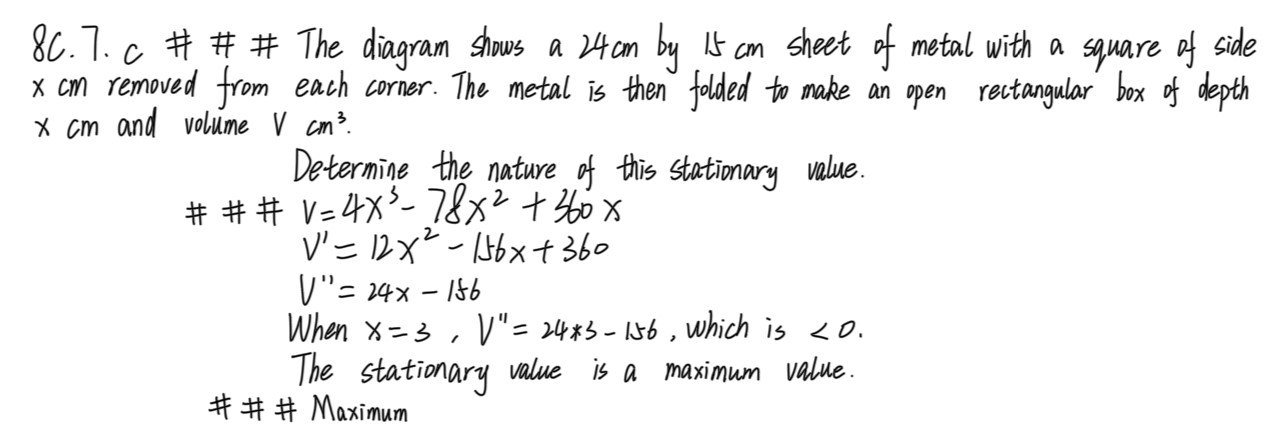 8C.7.c # # # The diagram shows a 24cm by 15 cm sheet of metal with a square of side
x cm removed from each corner. The metal is then folded to make an open rectangular box of depth
x cm and volume V cm³.
Determine the nature of this stationary value.
# # # V=4x³-78x²+360x
V'=12x²-156x+360
V''=24x-156
When x=3, V''=24*3-156, which is <0.
The stationary value is a maximum value.
# # # Maximum